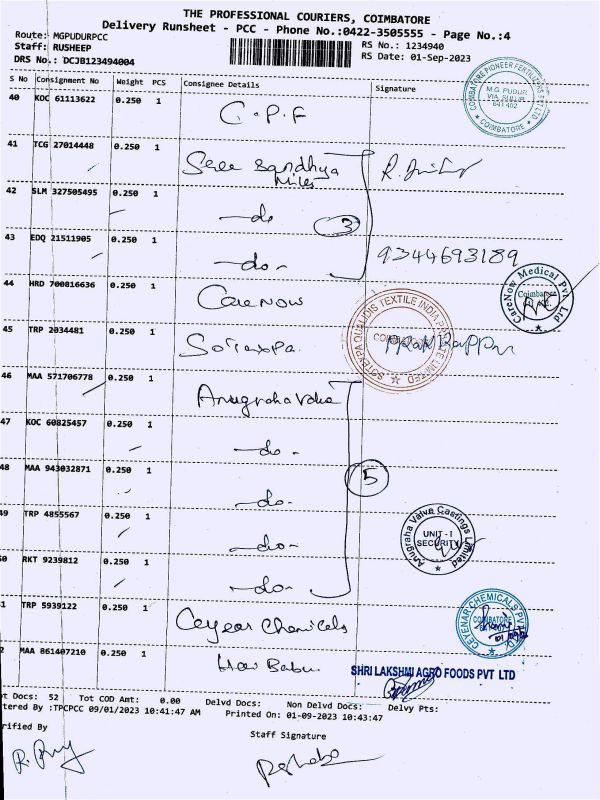 THE PROFESSIONAL COURIERS, COIMBATORE
Delivery Runsheet - PCC - Phone No.:0422-3505555 - Page No.:4
Route: MGPUDURPCC
Staff: RUSHEEP
RS No.: 1234940
DRS No.: DCJB123494004
RS Date: 01-Sep-2023
S No Consignment No Weight PCS Consignee Details Signature
40 KOC 61113622 0.250 1 C.P.F
COIMBATORE PIONEER FERTILIZERS PVT LTD
M.G. PUDUR
VIA. SULUR
641 402
COIMBATORE
41 TCG 27014448 0.250 1 Sree Sandhya
Mills
42 SLM 327505495 0.250 1 -do 3
43 EDQ 21511905 0.250 1 -do- 9344693189
44 HRD 700816636 0.250 1 CareNow
CareNow Medical Pvt Ltd
Coimbatore
45 TRP 2034481 0.250 1 Sotexpa
SOTEXPA QUALIDIS TEXTILE INDIA PRIVATE LIMITED
46 MAA 571706778 0.250 1 Anugraha Valve
47 KOC 60825457 0.250 1 -do-
48 MAA 943032871 0.250 1 -do- 5
49 TRP 4855567 0.250 1 -do-
Anugraha Valve Castings Limited
UNIT - I
SECURITY
50 RKT 9239812 0.250 1 -do-
51 TRP 5939122 0.250 1 Ceyear Chemicals
CEYENAR CHEMICALS PVT LTD
COIMBATORE
52 MAA 861407210 0.250 1 Hari Babu
SHRI LAKSHMI AGRO FOODS PVT LTD
ot Docs: 52 Tot COD Amt: 0.00 Delvd Docs: Non Delvd Docs: Delvy Pts:
tered By :TPCPCC 09/01/2023 10:41:47 AM Printed On: 01-09-2023 10:43:47
rified By Staff Signature